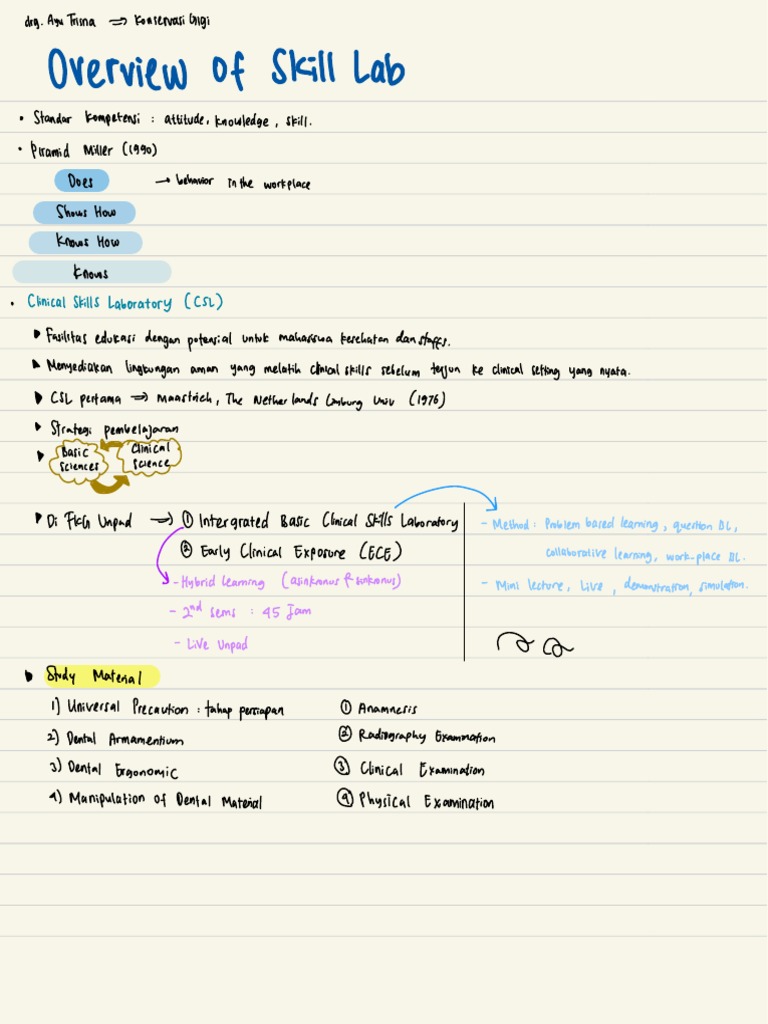 drg. Ayu Trisna => Konservasi Gigi
Overview of Skill Lab
• Standar Kompetensi : attitude, knowledge, skill.
• Piramid Miller (1990)
Does → behavior in the workplace
Shows How
Knows How
Knows
• Clinical Skills Laboratory (CSL)
Fasilitas edukasi dengan potensial untuk mahasiswa kesehatan dan staffs.
Menyediakan lingkungan aman yang melatih clinical skills sebelum terjun ke clinical setting yang nyata.
CSL pertama → Maastrich, The Netherlands Limburg Univ (1976)
Strategi pembelajaran
Basic Sciences
Clinical Science
Di FKG Unpad → ① Intergrated Basic Clinical Skills Laboratory
② Early Clinical Exposure (ECE)
- Hybrid Learning (asinkronus & sinkronus)
- 2nd sems : 45 Jam
- Live Unpad
- Method : Problem based learning, question BL,
collaborative learning, work-place BL.
- Mini lecture, Live, demonstration, simulation.
Study Material
1) Universal Precaution : tahap persiapan
2) Dental Armamentium
3) Dental Ergonomic
4) Manipulation of Dental Material
① Anamnesis
② Radiography Examination
③ Clinical Examination
④ Physical Examination